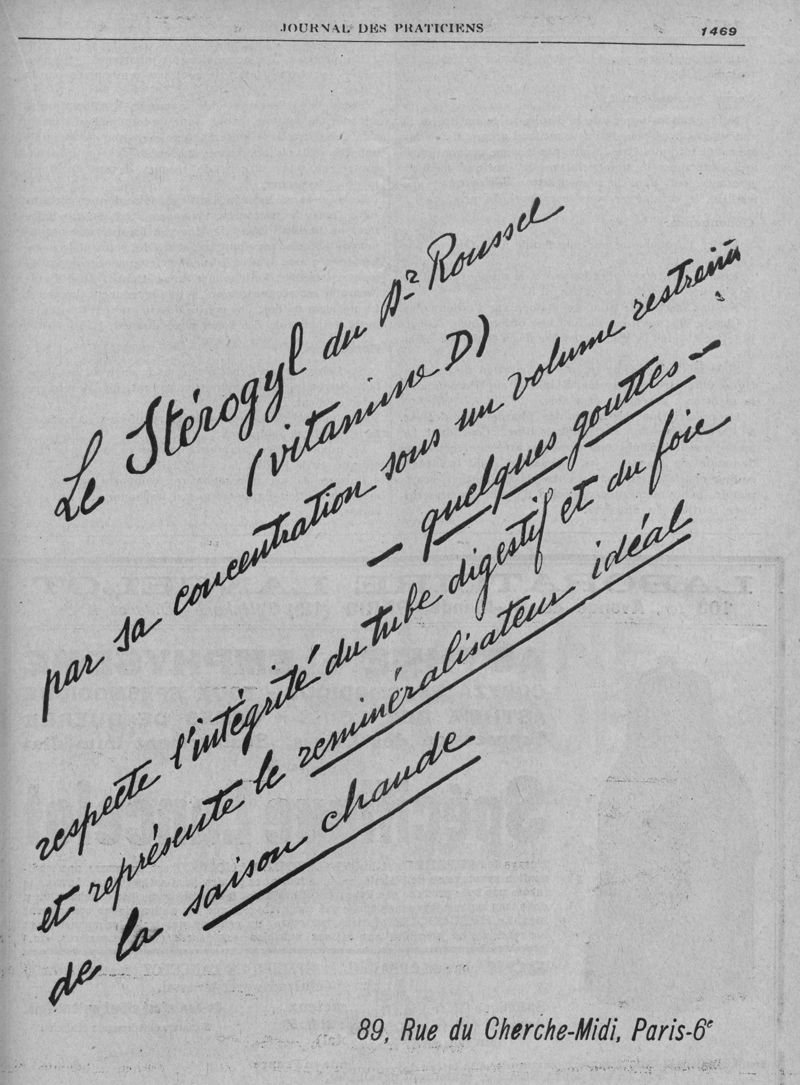 JOURNAL DES PRATICIENS
1469
Le Stérogyl du Dr Roussel
(vitamine D)
par sa concentration sous un volume restreint
— quelques gouttes —
respecte l'intégrité du tube digestif et du foie
et représente le reminéralisateur idéal
de la saison chaude
89, Rue du Cherche-Midi, Paris-6e